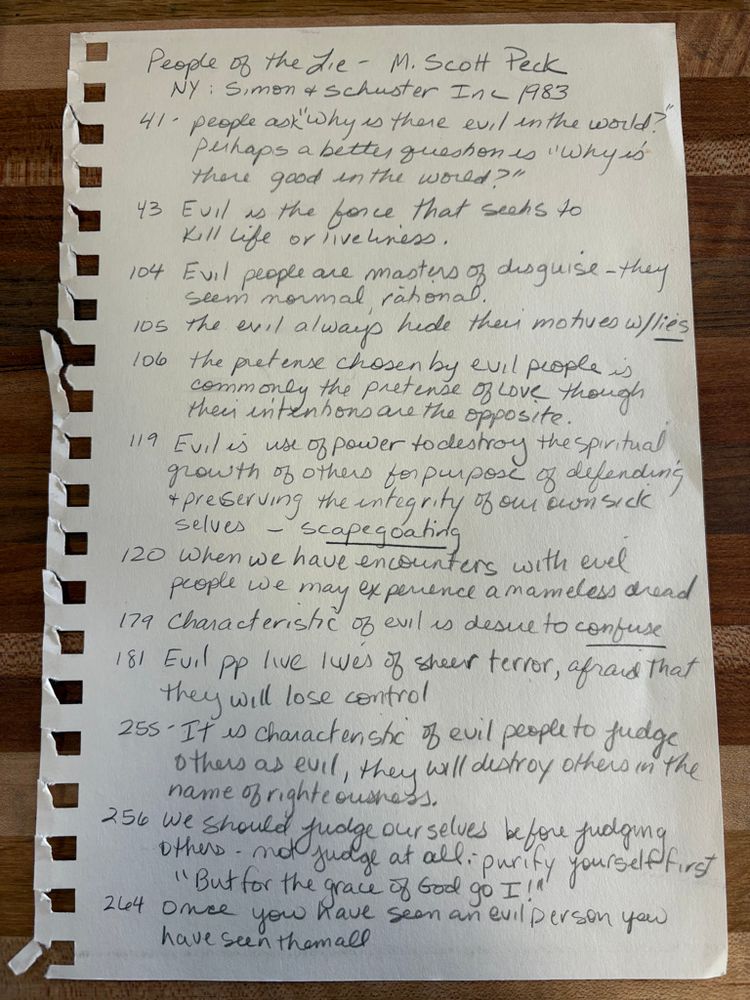 People of the Lie - M. Scott Peck
NY: Simon & Schuster Inc 1983
41 - people ask "Why is there evil in the world?"
perhaps a better question is "Why is
there good in the world?"
43 Evil is the force that seeks to
kill life or liveliness.
104 Evil people are masters of disguise - they
seem normal, rational.
105 the evil always hide their motives w/lies
106 the pretense chosen by evil people is
commonly the pretense of love though
their intentions are the opposite.
119 Evil is use of power to destroy the spiritual
growth of others for purpose of defending
& preserving the integrity of our own sick
selves - scapegoating
120 when we have encounters with evil
people we may experience a nameless dread
179 Characteristic of evil is desire to confuse
181 Evil pp live lives of sheer terror, afraid that
they will lose control
255 - It is characteristic of evil people to judge
others as evil, they will destroy others in the
name of righteousness.
256 We should judge ourselves before judging
others - not judge at all - purify yourself first
"But for the grace of God go I!"
264 Once you have seen an evil person you
have seen them all